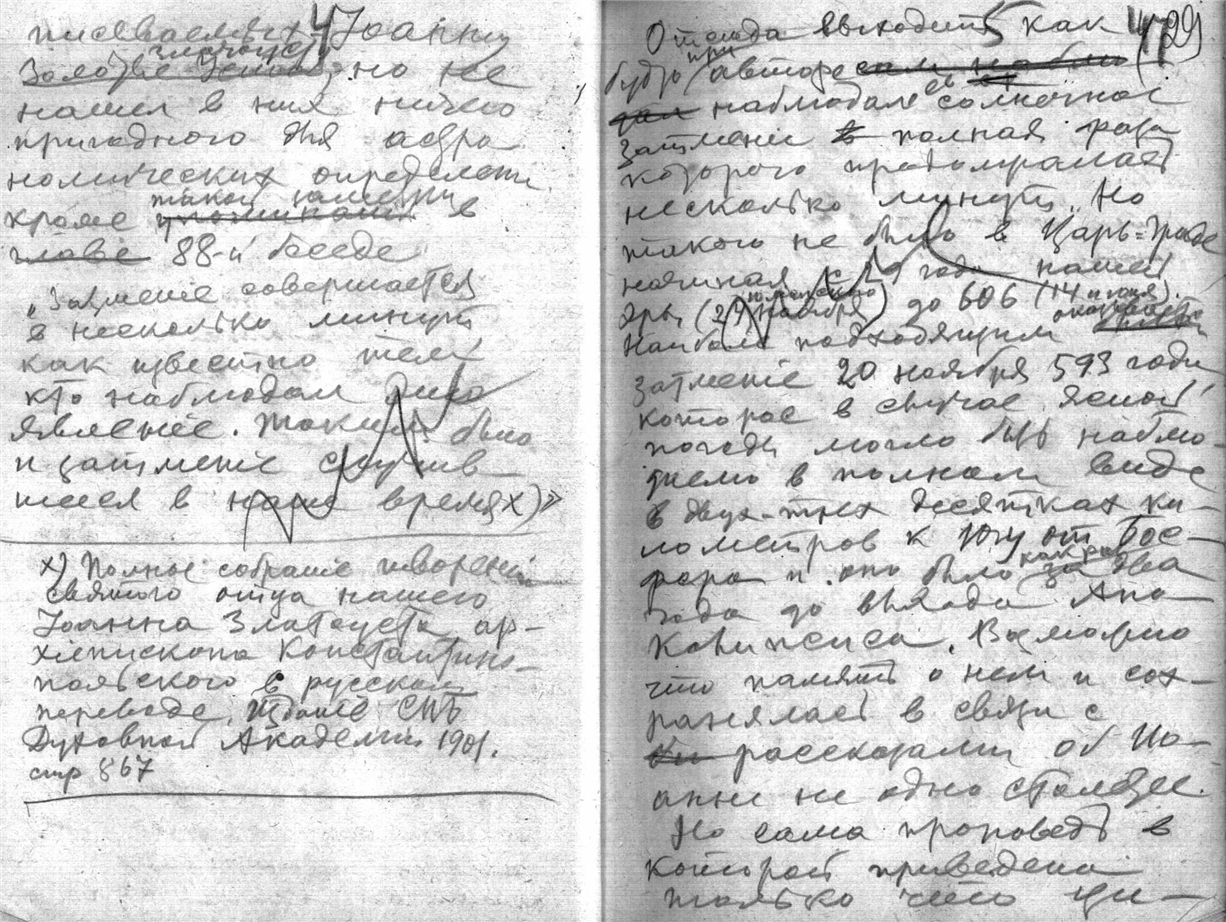 писываемых Иоанну
Златоусту, но не
нашел в них ничего
пригодного для астро
номических определений
кроме такой заметки в
88-й беседе
„Затмение совершается
в несколько минут
как известно тем
кто наблюдал это
явление. Таким было
и затмение случив
шееся в наше время х)»
х) Полное собрание творений
святого отца нашего
Иоанна Златоуста, ар-
хиепископа Константино-
польского в русском
переводе, издание СПБ
Духовной Академии 1901.
стр 867
Отсюда выходит как 29
будто при авторе
наблюдалось солнечное
затмение полная фаза
которого продолжалась
несколько минут. Но
такого не было в Царь-Граде
начиная с 29 года нашей
эры (24 ноября) до 606 (14 июня).
Наиболее подходящим оказывается
затмение 20 ноября 593 года
которое в случае ясной
погоды могло быть наблю-
даемо в полном виде
в двух-трех десятках ки-
лометров к югу от Бос-
фора и оно было как раз за два
года до выхода Апо-
калипсиса. Возможно
что память о нем и сох-
ранялась в связи с
рассказами об Ио-
анне не одно столетие.
Но сама проповедь в
которой приведена
только что ци-